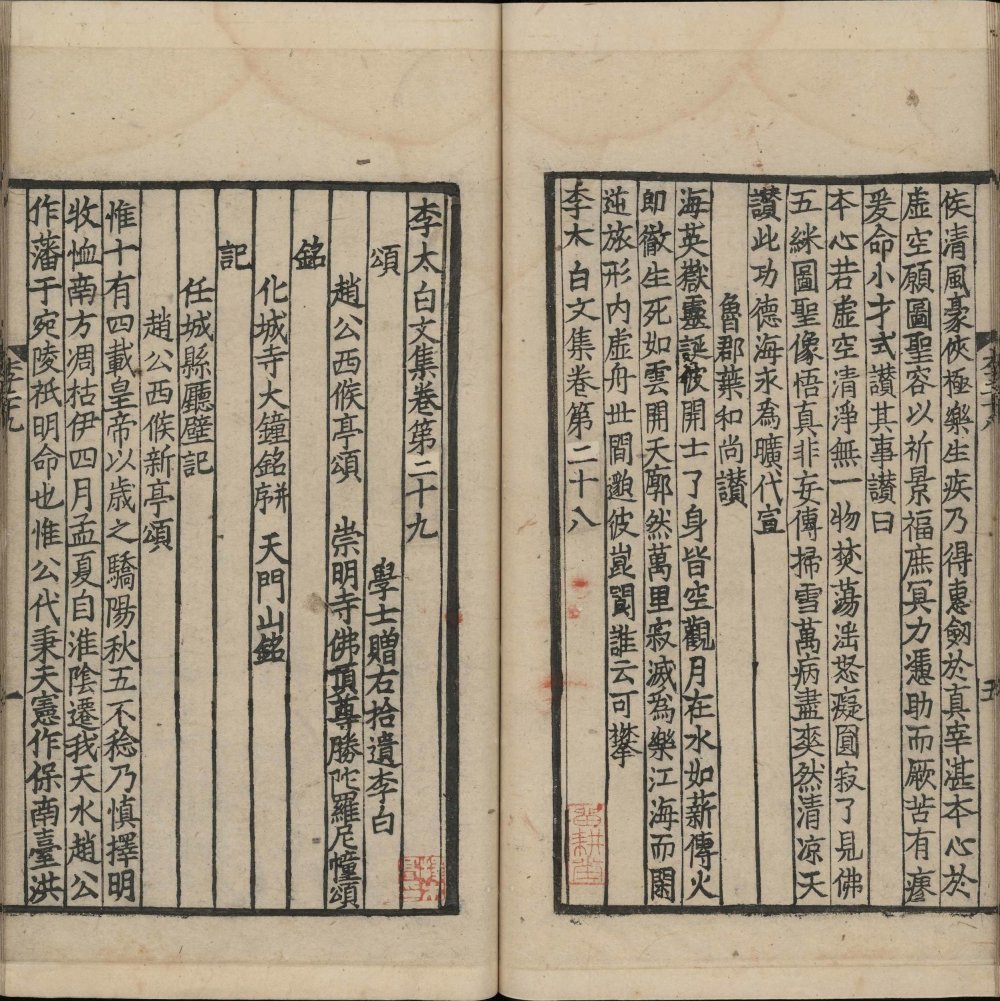 侯清風豪俠極樂生疾乃得惠劒於真宰湛本心於
虛空願圖聖容以祈景福庶冥力憑助而厥苦有瘳
爰命小才式讃其事讃曰
本心若虛空清淨無一物焚蕩滛怒癡圓寂了見佛
五綵圖聖像悟真非妄傳掃雪萬病盡爽然清凉天
讃此功德海永為曠代宣
魯郡葉和尚讃
海英嶽靈誕彼開士了身皆空觀月在水如薪傳火
即徹生死如雲開天廓然萬里寂滅為樂江海而閑
逆旅形内虛舟丗間邈彼崑閬誰云可攀
李太白文集卷第二十八
五
李太白文集卷第二十九
學士贈右拾遺李白
頌
趙公西候亭頌　崇明寺佛頂尊勝陀羅尼幢頌
銘
化城寺大鐘銘并序　天門山銘
記
任城縣廳壁記
趙公西候新亭頌
惟十有四載皇帝以歳之驕陽秋五不稔乃慎擇明
牧恤南方凋枯伊四月孟夏自淮陰遷我天水趙公
作藩于宛陵祇明命也惟公代秉天憲作保南臺洪
一